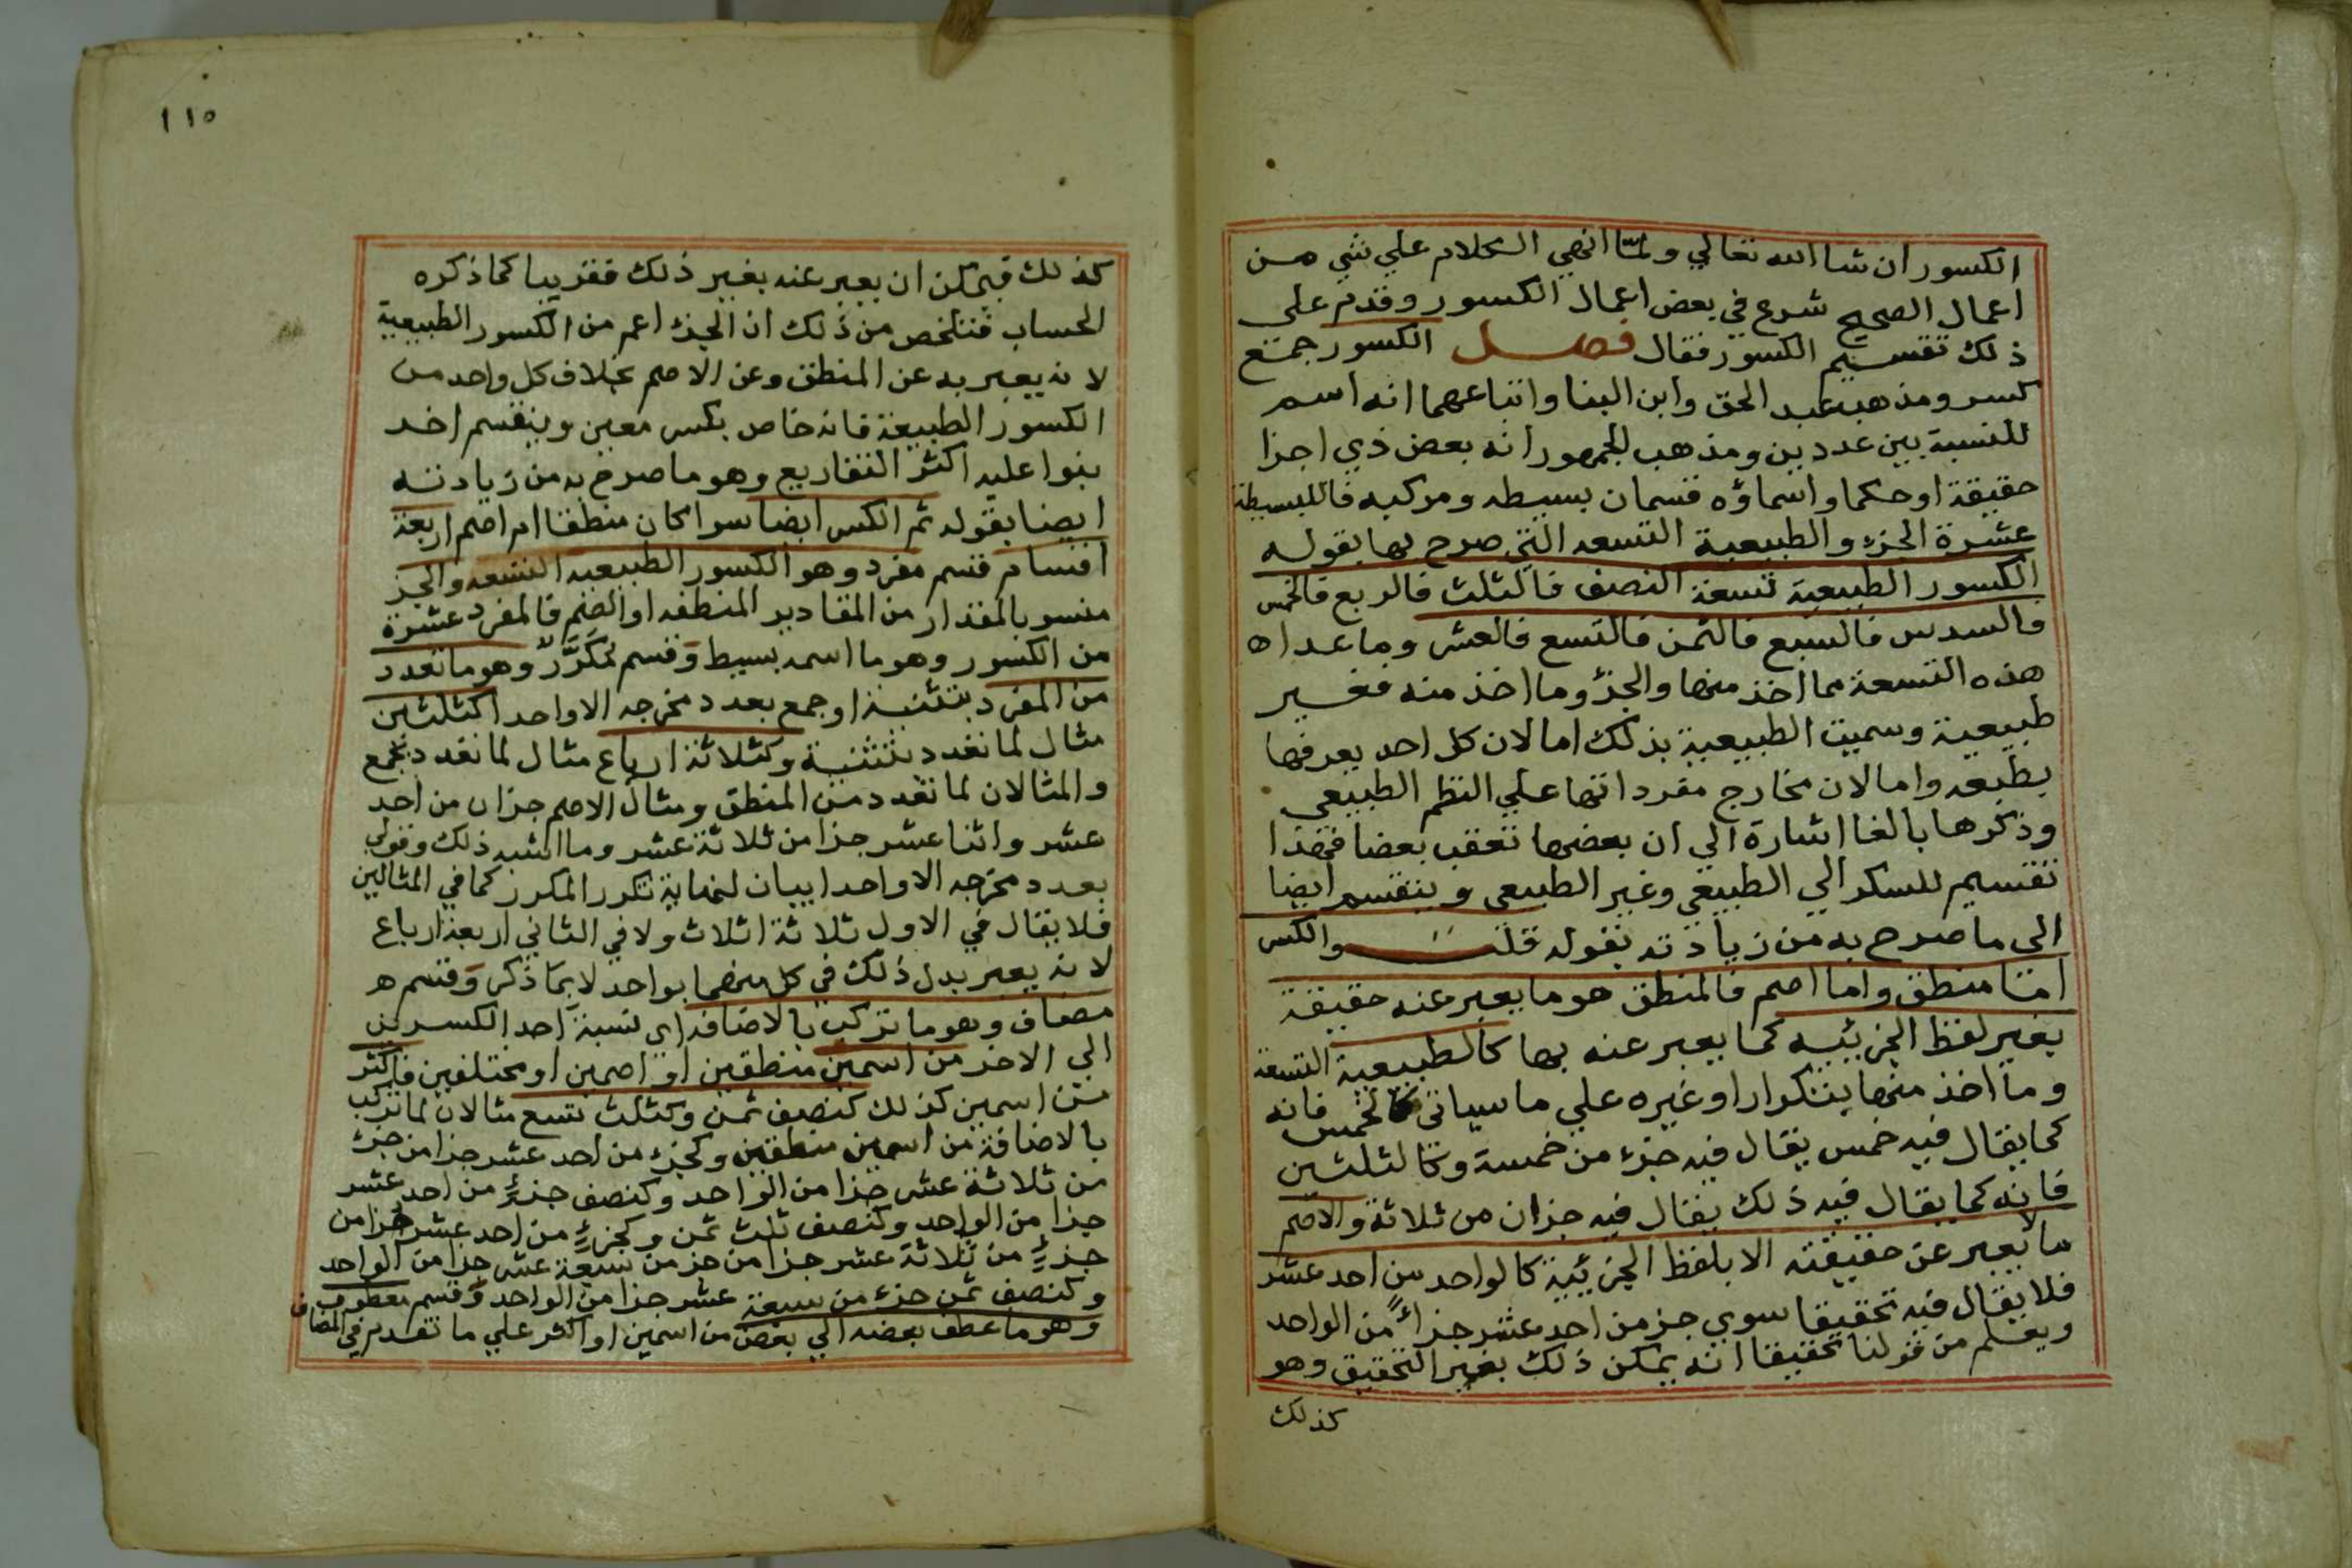 الكسور ان شا الله تعالي ولما انهي الكلام علي شي من
اعمال الصحيح شرع في بعض اعمال الكسور وقدم على
ذلك تقسيم الكسور فقال فصل الكسور جمع
كسر ومذهب عبد الحق وابن البنا واتباعهما انه اسم
للنسبة بين عددين ومذهب الجمهور انه بعض ذي اجزا
حقيقة او حكما واسماؤه قسمان بسيطه ومركبه فالبسيطة
عشرة الجزء والطبيعية التسعه التي صرح بها بقوله
الكسور الطبيعية تسعة النصف فالثلث فالربع فالخمس
فالسدس فالسبع فالثمن فالتسع فالعشر وما عدا ه
هذه التسعة مما اخذ منها والجزؤ وما اخذ منه فغير
طبيعية وسميت الطبيعية بذلك اما لان كل احد يعرفها
بطبعه واما لان مخارج مفرداتها علي النظم الطبيعي
وذكرها بالفا اشارة الي ان بعضها تعقب بعضا فهذا
تقسيم للسكر الي الطبيعي وغير الطبيعي وينقسم ايضا
الى ما صرح به من زيادته بقوله قلت والكسر
اما منطق واما اصم فالمنطق هو ما يعبر عنه حقيقة
بغير لفظ الجزئيه كما يعبر عنه بها كالطبيعية التسعة
وما اخذ منها بتكرار او غيره علي ما سياتى كالخمس فانه
كما يقال فيه خمس يقال فيه جزء من خمسة وكالثلثين
فانه كما يقال فيه ذلك يقال فيه جزان من ثلاثة والاصم
ما لا يعبر عن حقيقته الا بلفظ الجزئية كالواحد من احد عشر
فلا يقال فيه تحقيقا سوي جز من احد عشر جزاً من الواحد
ويعلم من قولنا تحقيقا انه يمكن ذلك بغير التحقيق وهو
كذلك
١١٥
كذلك فيمكن ان يعبر عنه بغير ذلك فقريبا كما ذكره
الحساب فتلخص من ذلك ان الجزء اعم من الكسور الطبيعية
لانه يعبر به عن المنطق وعن الاصم بخلاف كل واحد من
الكسور الطبيعة فانه خاص بكسر معين وينقسم اخد
بنوا عليه اكثر التفاريع وهو ما صرح به من زيادته
ايضا بقوله ثم الكسر ايضا سوا كان منطقا ام اصم اربعة
اقسام قسم مفرد وهو الكسور الطبيعيه التسعه والجز
منسوبا لمقدار من المقادير المنطقه او الصم فالمفرد عشرة
من الكسور وهو ما اسمه بسيط وَقسم مُكَرَّرٌ وهو ما تعدد
من المفرد بتثنية او جمع بعدد مخرجه الا واحدا كثلثين
مثال لما تعدد بتثنية وكثلاثة ارباع مثال لما تعدد بجمع
والمثالان لما تعدد من المنطق ومثال الاصم جزان من احد
عشر واثنا عشر جزا من ثلاثة عشر وما اشبه ذلك وقولي
بعدد مخرجه الا واحدا بيان لنهاية تكرر المكرر كما في المثالين
فلا يقال في الاول ثلاثة اثلاث ولا في الثاني اربعة ارباع
لانه يعبر بدل ذلك في كل منهما بواحد لا بما ذكر وَقسم ه
مضاف وهو ما تركب بالاضافه اي نسبة احد الكسرين
الي الاخر من اسمين منطقين او اصمين او مختلفين فاكثر
من اسمين كذلك كنصف ثمن وكثلث تسع مثالان لما تركب
بالاضافة من اسمين منطقين وكجزء من احد عشر جزا من جزء
من ثلاثة عشر جزا من الواحد وكنصف جزءٍ من احد عشر
جزا من الواحد وكنصف ثلث ثمن وكجزءٍ من احد عشر جزا من
جزءٍ من ثلاثة عشر جزا من جز من سبعة عشر جزا من الواحد
وكنصف ثمن جزء من سبعة عشر جزا من الواحد وَقسم معطوف
وهو ما عطف بعضه الي بعض من اسمين او اكثر علي ما تقدم في المضاف